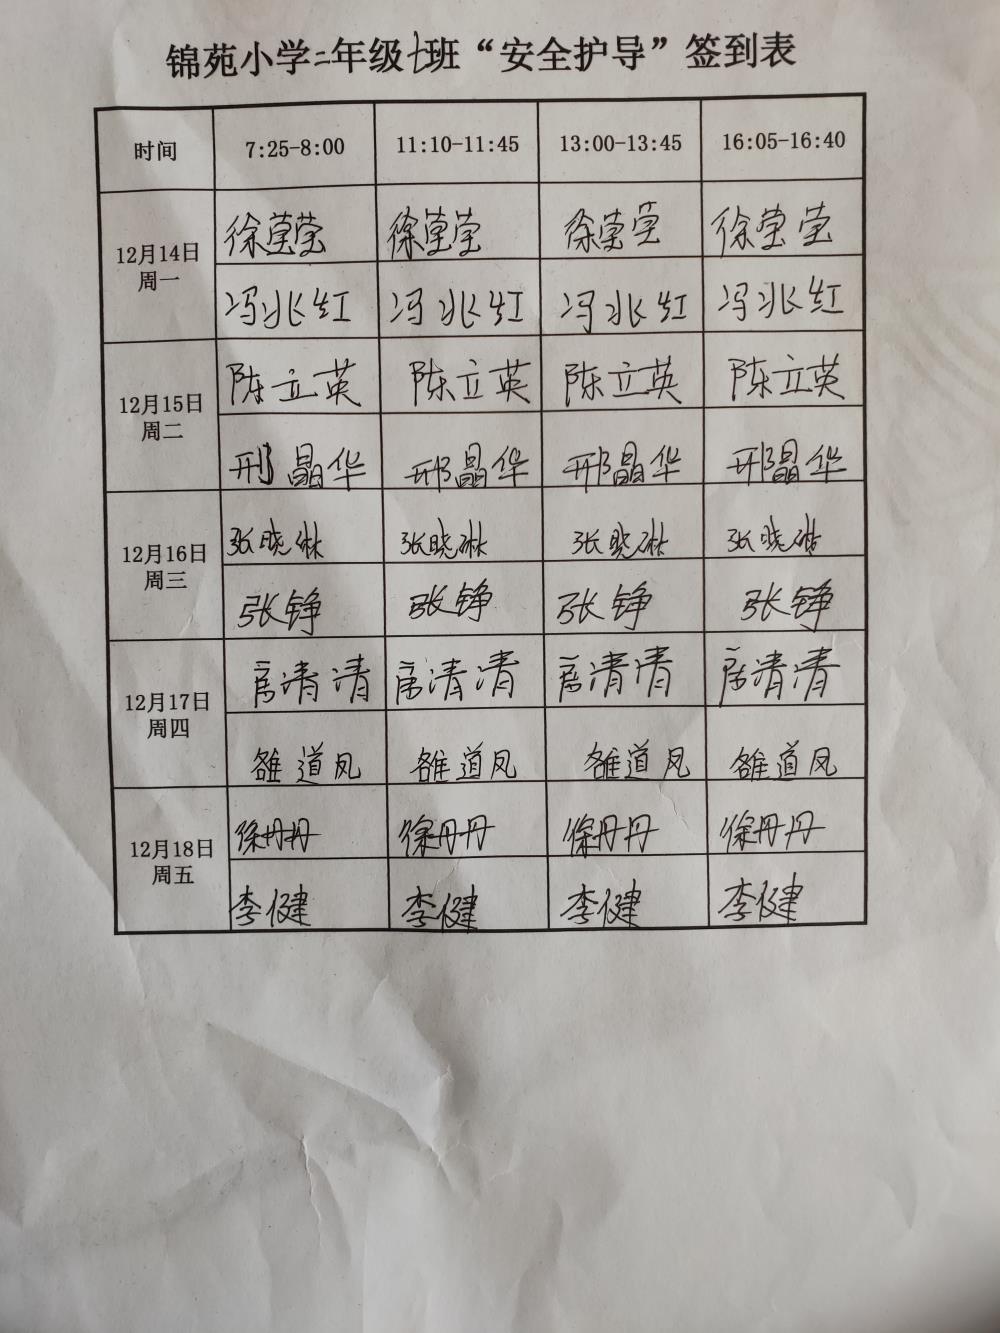 锦苑小学二年级七班“安全护导”签到表
时间 7:25-8:00 11:10-11:45 13:00-13:45 16:05-16:40
12月14日 周一
徐莹莹 徐莹莹 徐莹莹 徐莹莹
冯兆红 冯兆红 冯兆红 冯兆红
12月15日 周二
陈立英 陈立英 陈立英 陈立英
邢晶华 邢晶华 邢晶华 邢晶华
12月16日 周三
张晓琳 张晓琳 张晓琳 张晓琳
张铮 张铮 张铮 张铮
12月17日 周四
席清清 席清清 席清清 席清清
雒道凤 雒道凤 雒道凤 雒道凤
12月18日 周五
徐丹丹 徐丹丹 徐丹丹 徐丹丹
李健 李健 李健 李健